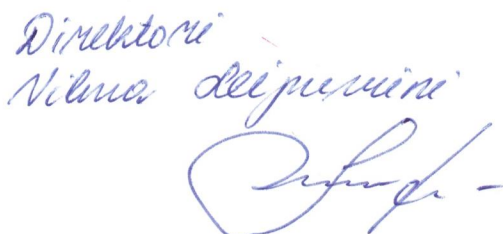 Direktorė
Vilma Leipuvienė